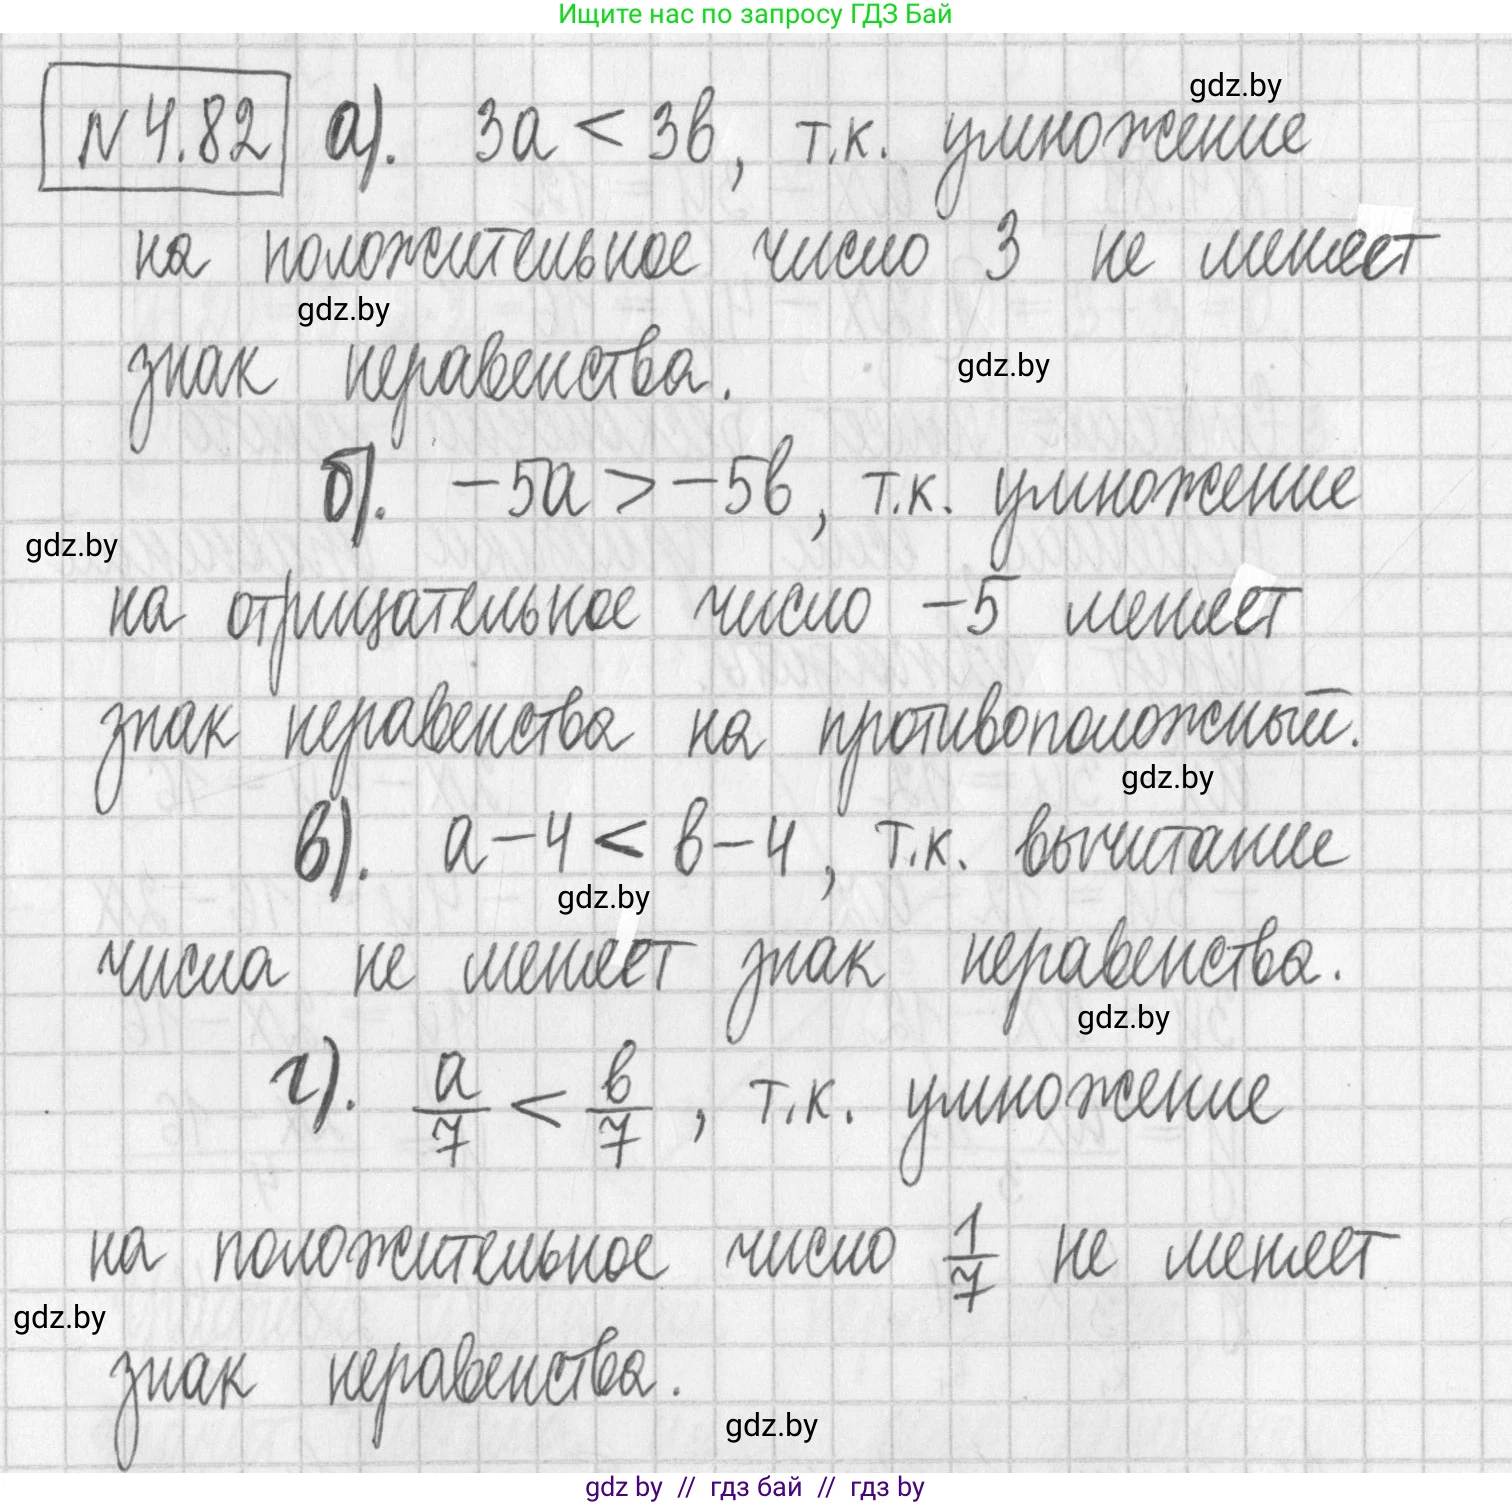 Ищите нас по запросу ГДЗ Бай
gdz.by
№ 4.82 а). 3а < 3в, т.к. умножение
на положительное число 3 не меняет
gdz.by
знак неравенства.
gdz.by
б). −5а > −5в, т.к. умножение
gdz.by
на отрицательное число −5 меняет
знак неравенства на противоположный.
gdz.by
в). а − 4 < в − 4, т.к. вычитание
gdz.by
числа не меняет знак неравенства.
gdz.by
г). а/7 < в/7, т.к. умножение
на положительное число 1/7 не меняет
gdz.by
знак неравенства.
gdz.by
gdz by // гдз бай // гдз by